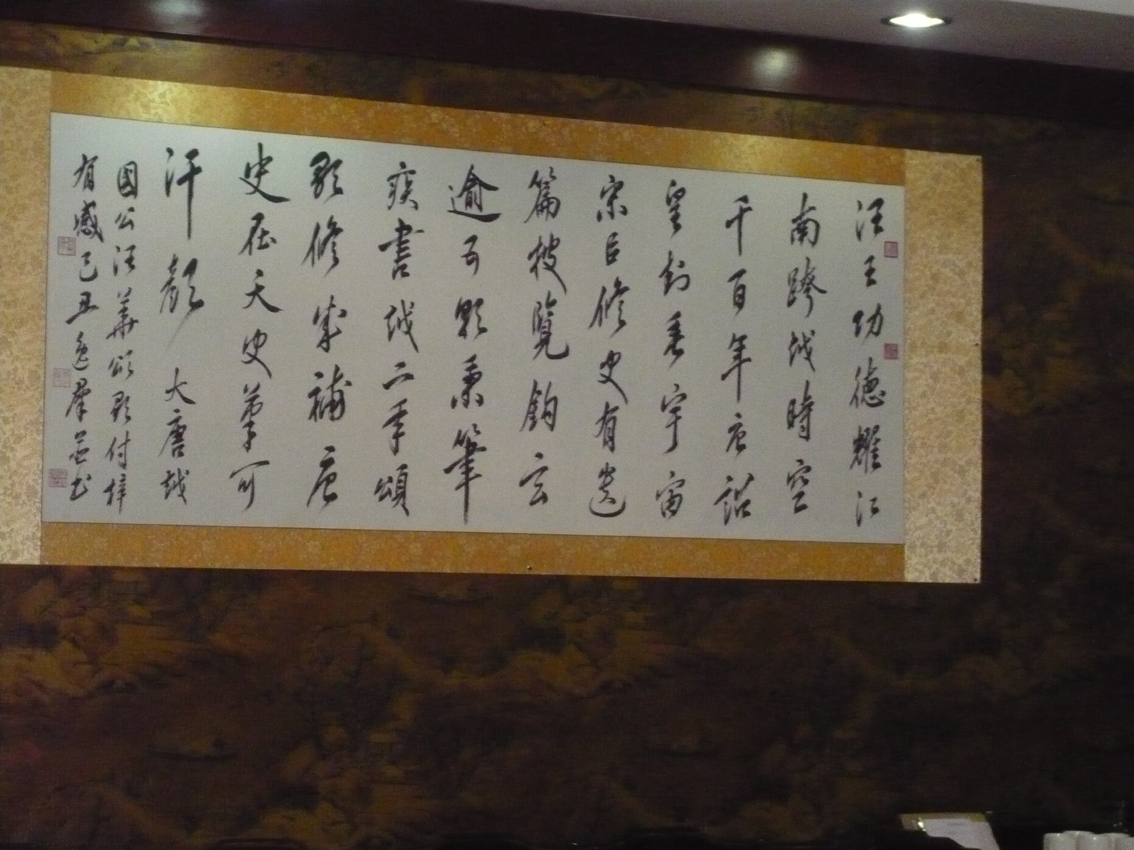 汪王功德耀江
南跨越時空
千百年唐詔
皇封垂宇宙
宋臣修史有遺
篇披覽鈞玄
逾秉筆
疾書越二年頌
歌修成補唐
史在天史可
汗顏 大唐越
國公汪華頌歌付梓
有感己丑逸群並书